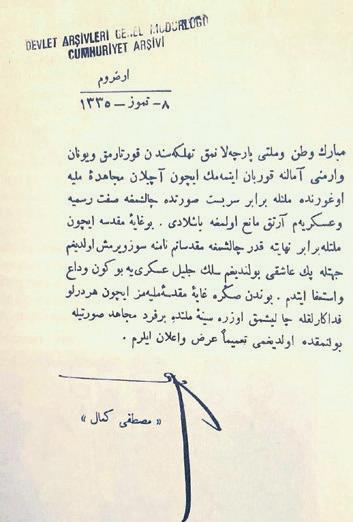 DEVLET ARŞİVLERİ GENEL MÜDÜRLÜĞÜ
CUMHURİYET ARŞİVİ
ارضروم
٨- تموز - ١٣٣٥
مبارك وطن وملتى پارچه‌لانمق تهلكه‌سندن قورتارمق ويونان
وارمنى آمالنه قوربان ايتمه‌مك ايچون آچيلان مجاهدهٔ مليه
اوغورنده ملتله برابر سربست صورتده چاليشمغه صفت رسميه
وعسكريه‌م آرتق مانع اولمغه باشلادى . بوغايهٔ مقدسه ايچون
ملتله برابر نهايته قدر چاليشمغه مقدساتم نامنه سوزويرمش اولديغم
جهتله پك عاشقى بولنديغم سلك جليل عسكرى‌يه بوكون وداع
واستعفا ايتدم . بوندن صكره غايهٔ مقدسهٔ مليه‌مز ايچون هردرلو
فداكارلقله چاليشمق اوزره سينهٔ ملتده برفرد مجاهد صورتيله
بولنمقده اولديغمى تعميماً عرض واعلان ايلرم .
« مصطفى كمال »